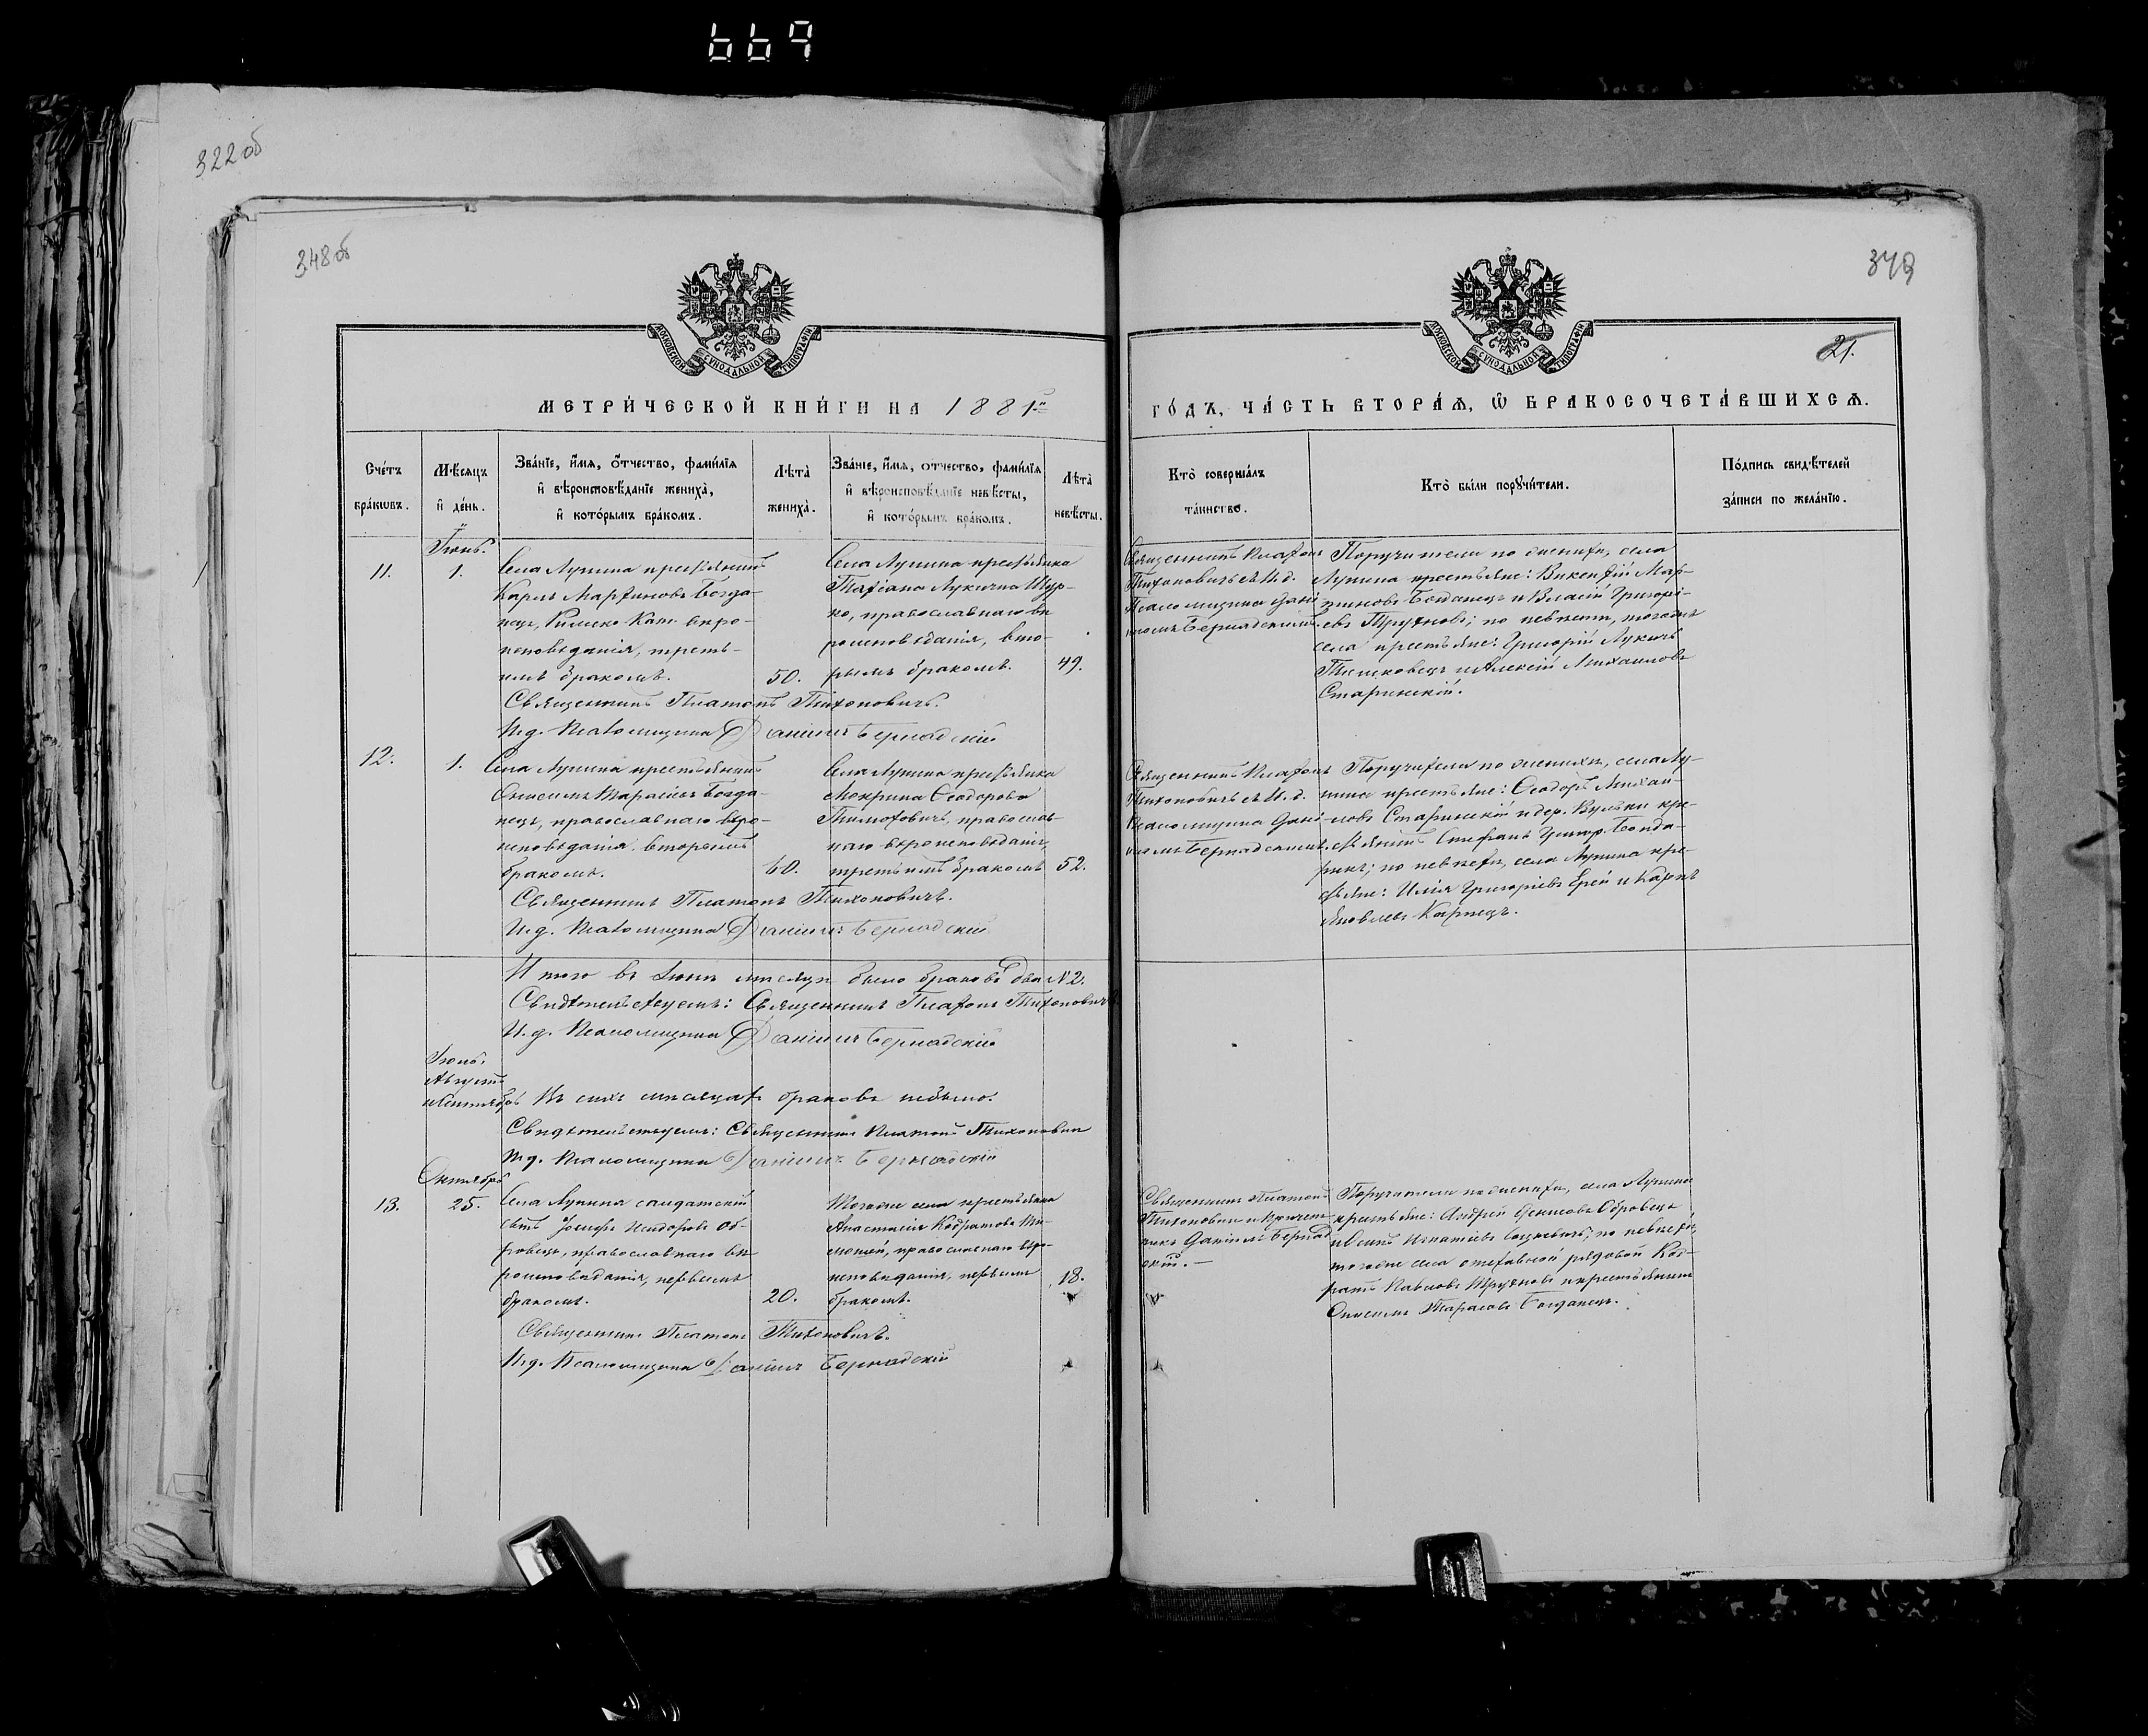 669
322 об
348 об
349
21.
МОСКОВСКОЙ СѴНОДАЛЬНОЙ ТИПОГРАФІИ
МОСКОВСКОЙ СѴНОДАЛЬНОЙ ТИПОГРАФІИ
МЕТРИ́ЧЕСКОЙ КНИ́ГИ НА 1881й
ГО́ДЪ, ЧА́СТЬ ВТОРА́Ѧ, Ѡ҆ БРАКОСОЧЕТА́ВШИХСѦ.
Сче́тъ бра́кѡвъ.
Мѣ́сѧцъ и҆ де́нь.
Зва́нїе, и҆́мѧ, ѻ҆́тчество, фамѝлїѧ
и҆ вѣроисповѣ́данїе жениха̀,
и҆ кото́рымъ бра́комъ.
Лѣта̀ жениха̀.
Зва́нїе, и҆́мѧ, отчество, фамѝлїѧ
и҆ вѣроисповѣ́данїе невѣ́сты,
и҆ кото́рымъ бра́комъ.
Лѣта̀ невѣ́сты.
Кто̀ соверша́лъ
та́инство.
Кто̀ бы́ли порꙋчи́тели.
По́дпись свидѣ́телей
за́писи по жела́нїю.
Іюнь.
11.
1.
Села Лунина крестьянинъ
Карлъ Мартиновъ Богда-
нецъ, Римско-Кат. веро-
исповѣданія, треть-
имъ бракомъ.
50.
Села Лунина крестьянка
Татіана Лукична Шур-
ко, православнаго вѣ
роисповѣданія, вто-
рымъ бракомъ.
49.
Священникъ Платонъ
Тихоновичъ съ И. д.
Псаломщика Дані
иломъ Бернадскимъ.
Поручители по женихѣ, села
Лунина крестьяне: Викентій Мар-
тиновъ Богданецъ и Власій Григорі-
евъ Трухновъ; по невѣстѣ, тогоже
села крестьяне: Григорій Лукичъ
и Алексій Михаиловъ
Старинскій.
Священникъ Платонъ Тихоновичъ.
И. д. Псаломщика Даніилъ Бернадскій
12.
1.
Села Лунина крестьянинъ
Онисимъ Тарасіевъ Богда-
нецъ, православнаго веро-
исповѣданія, вторымъ
бракомъ.
60.
Села Лунина крестьянка
Мокрина Ѳеодорова
Тимоховичъ, православ-
наго вѣроисповѣданія,
третьимъ бракомъ
52.
Священникъ Платонъ
Тихоновичъ съ И. д.
Псаломщика Дані
иломъ Бернадскимъ.
Поручители по женихѣ, села Лу-
нина крестьяне: Ѳеодоръ Михаи-
ловъ Старинскій и дер. Вульки кре-
стьянинъ Стефанъ Григор. Бонда-
рикъ; по невѣстѣ, села Лунина кре-
стьяне: Илія Григоріевъ Ерей и Карпъ
Яковлевъ Карпецъ.
Священникъ Платонъ Тихоновичъ.
И. д. Псаломщика Даніилъ Бернадскій
Итого въ Іюнѣ мѣсяцѣ было браковъ два N 2.
Свидѣтельствуемъ: Священникъ Платонъ Тихоновичъ
И. д. Псаломщика Даніилъ Бернадскій
Іюль.
Августъ
и Сентябрь
Въ сихъ мѣсяцахъ браковъ небыло.
Свидѣтельствуемъ: Священникъ Платонъ Тихонович
И. д. Псаломщика Даніилъ Бернадскій
Октябрь
13.
25.
Села Лунина солдатскій
сынъ Іосифъ Исидоровъ Об-
ровецъ, православнаго вѣ
роисповѣданія, первымъ
бракомъ.
20.
Тогоже села крестьянка
Анастасія Кодратова
православнаго веро-
исповѣданія, первымъ
бракомъ.
18.
Священникъ Платонъ
Тихонович и причет-
никъ Даніилъ Бернад
скій.—
Поручители по женихѣ, села Лунина
крестьяне: Андрей Денисовъ Обровецъ
и Игнатіевъ по невѣстѣ,
тогоже села отставной рядовой Код-
ратъ Павловъ Трухновъ и крестьянинъ
Онисимъ Тарасовъ Богданецъ.
Священникъ Платонъ Тихоновичъ.
И. д. Псаломщика Даніилъ Бернадскій